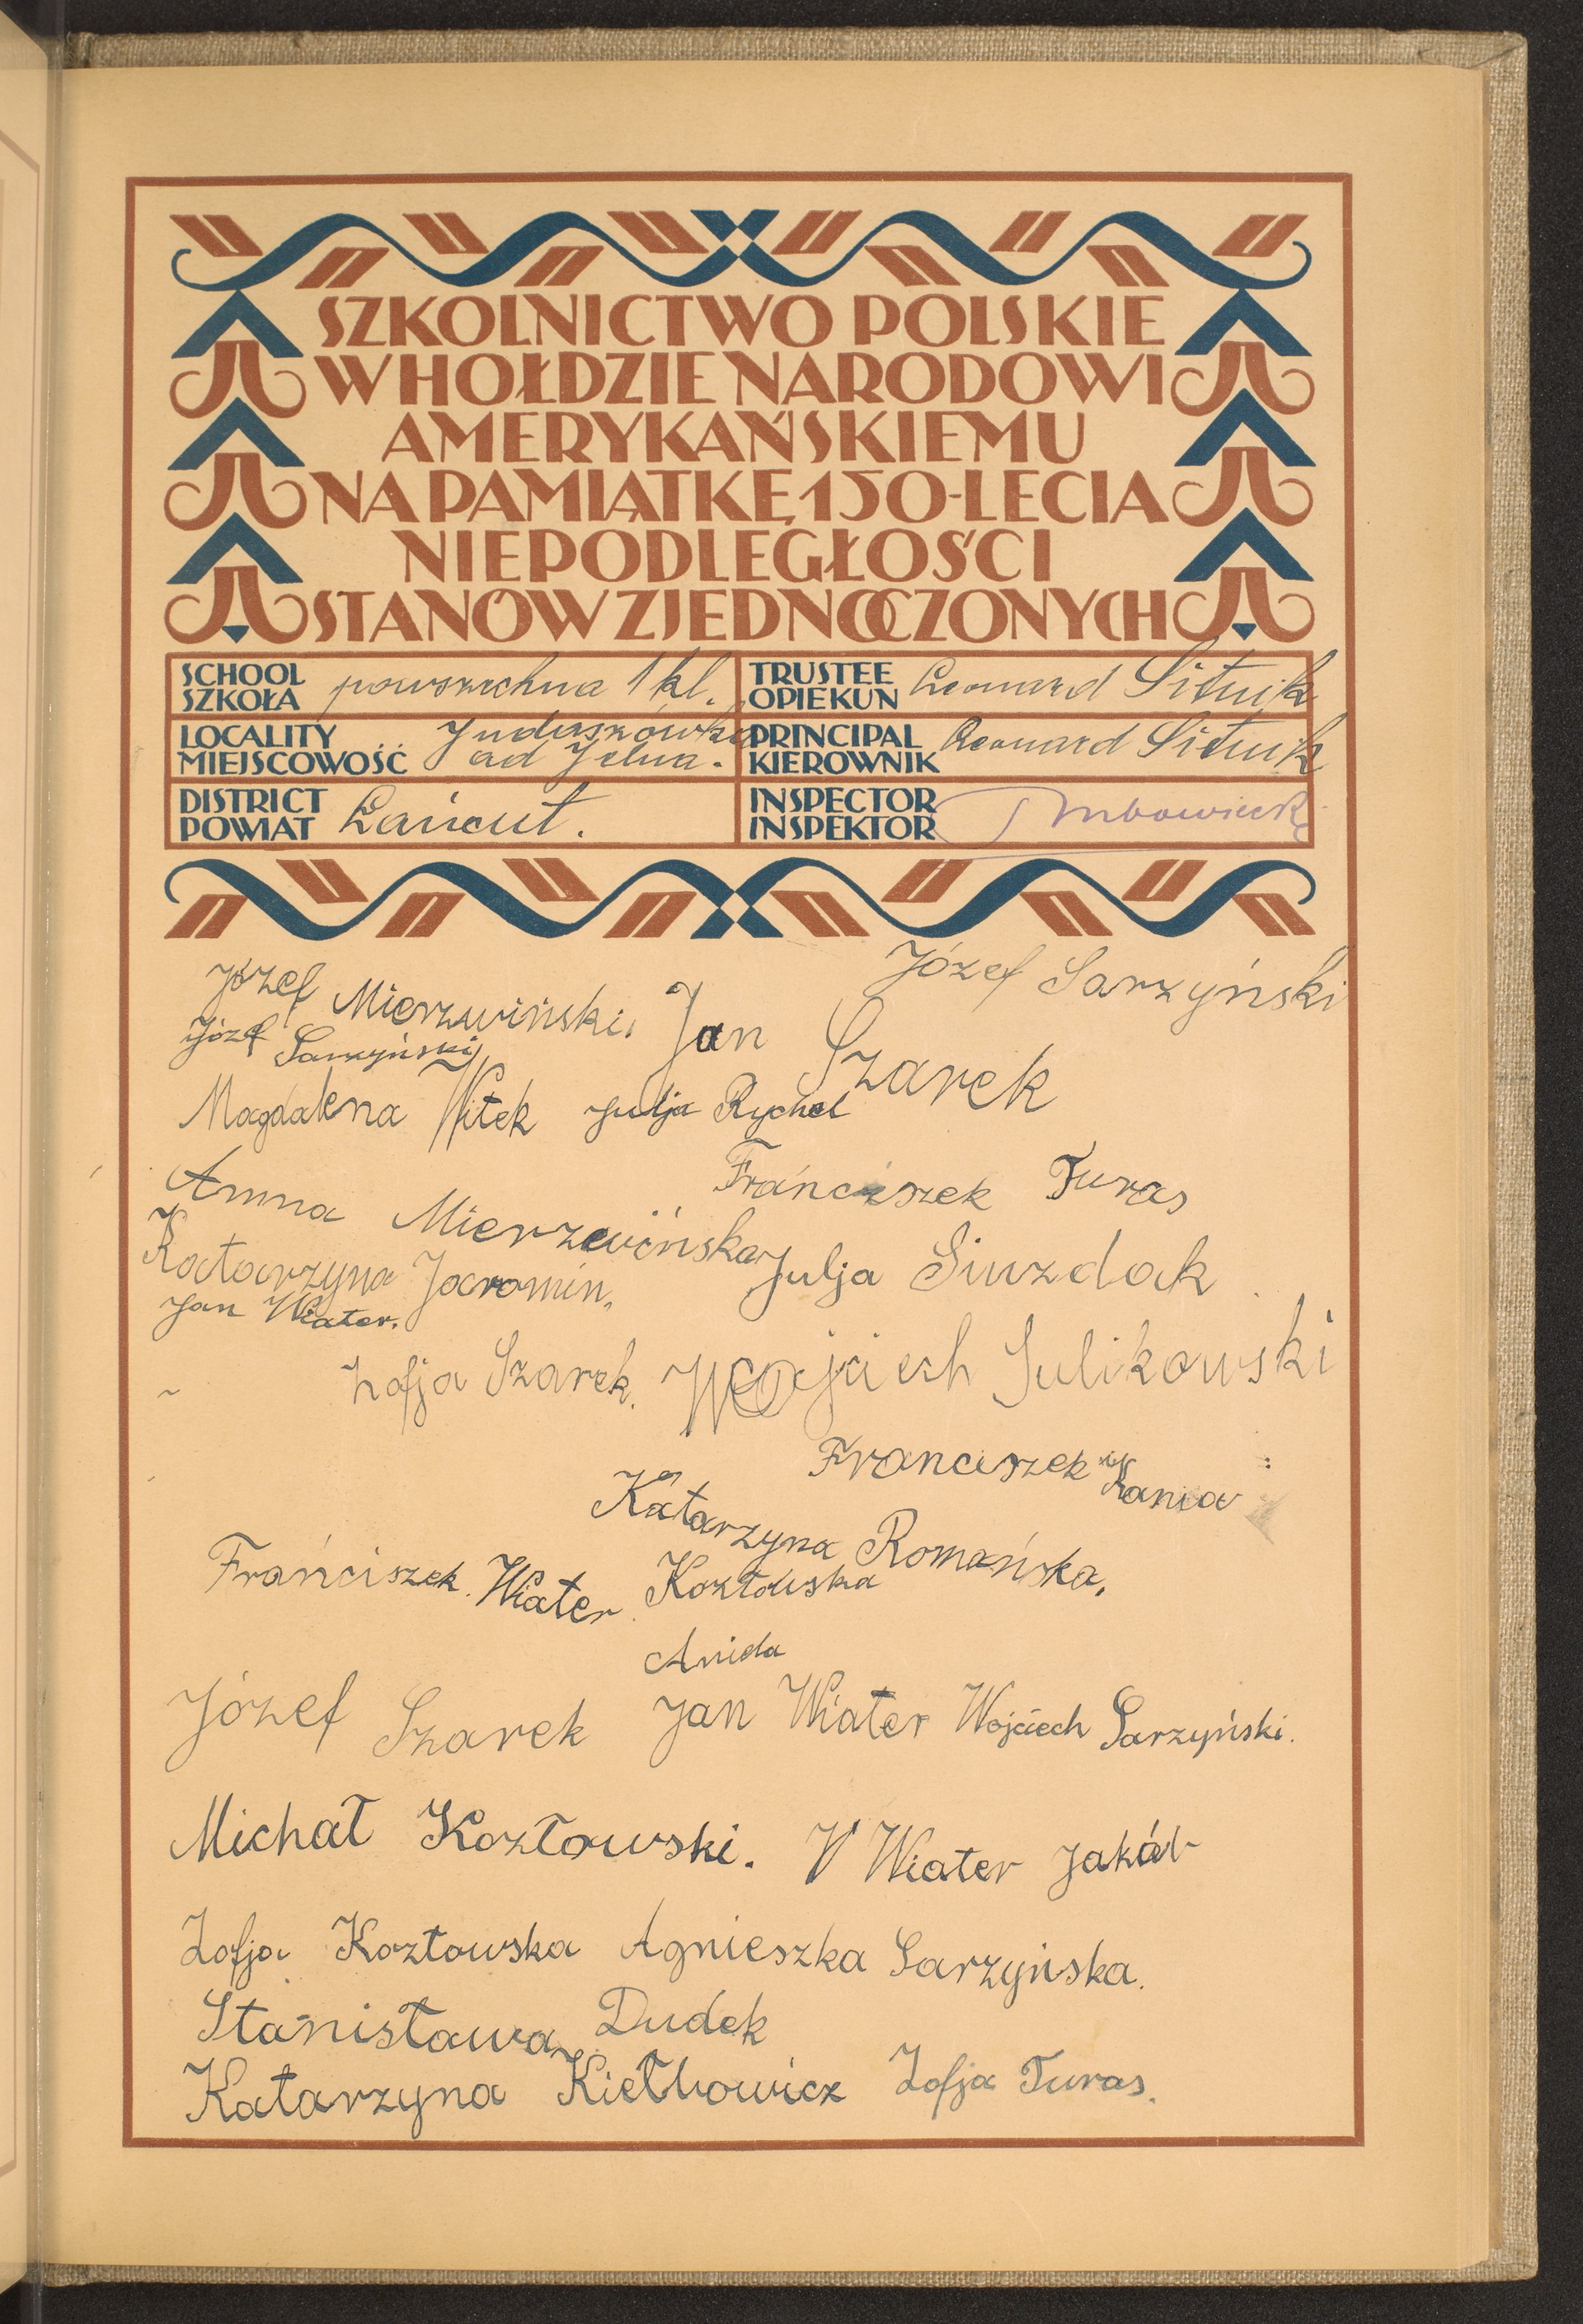 SZKOLNICTWO POLSKIE
W HOŁDZIE NARODOWI
AMERYKAŃSKIEMU
NA PAMIĄTKĘ 150-LECIA
NIEPODLEGŁOŚCI
STANÓW ZJEDNOCZONYCH
SCHOOL
SZKOŁA powszechna 1 kl.
TRUSTEE
OPIEKUN Leonard Sitnik
LOCALITY
MIEJSCOWOŚĆ Juduszówka
ad Jelna.
PRINCIPAL
KIEROWNIK Leonard Sitnik
DISTRICT
POWIAT Łańcut.
INSPECTOR
INSPEKTOR
Józef Sarzyński
Józef Mierzwiński.
Jan Szarek
Józef Sarzyński
Magdalena Witek Julja Rychel
Franciszek Turas
Anna Mierzwińska
Julja Siuzdak
Katarzyna Jaromin,
Jan Wiater.
Zofja Szarek. Wojciech Sulikowski
Franciszek Kania
Katarzyna Romańska,
Franciszek. Wiater. Kozłowska
Aniela
Józef Szarek Jan Wiater Wojciech Sarzyński.
Michał Kozłowski. W Wiater Jakób
Zofja Kozłowska Agnieszka Sarzyńska.
Stanisława Dudek
Katarzyna Kiełbowicz Zofja Turas.